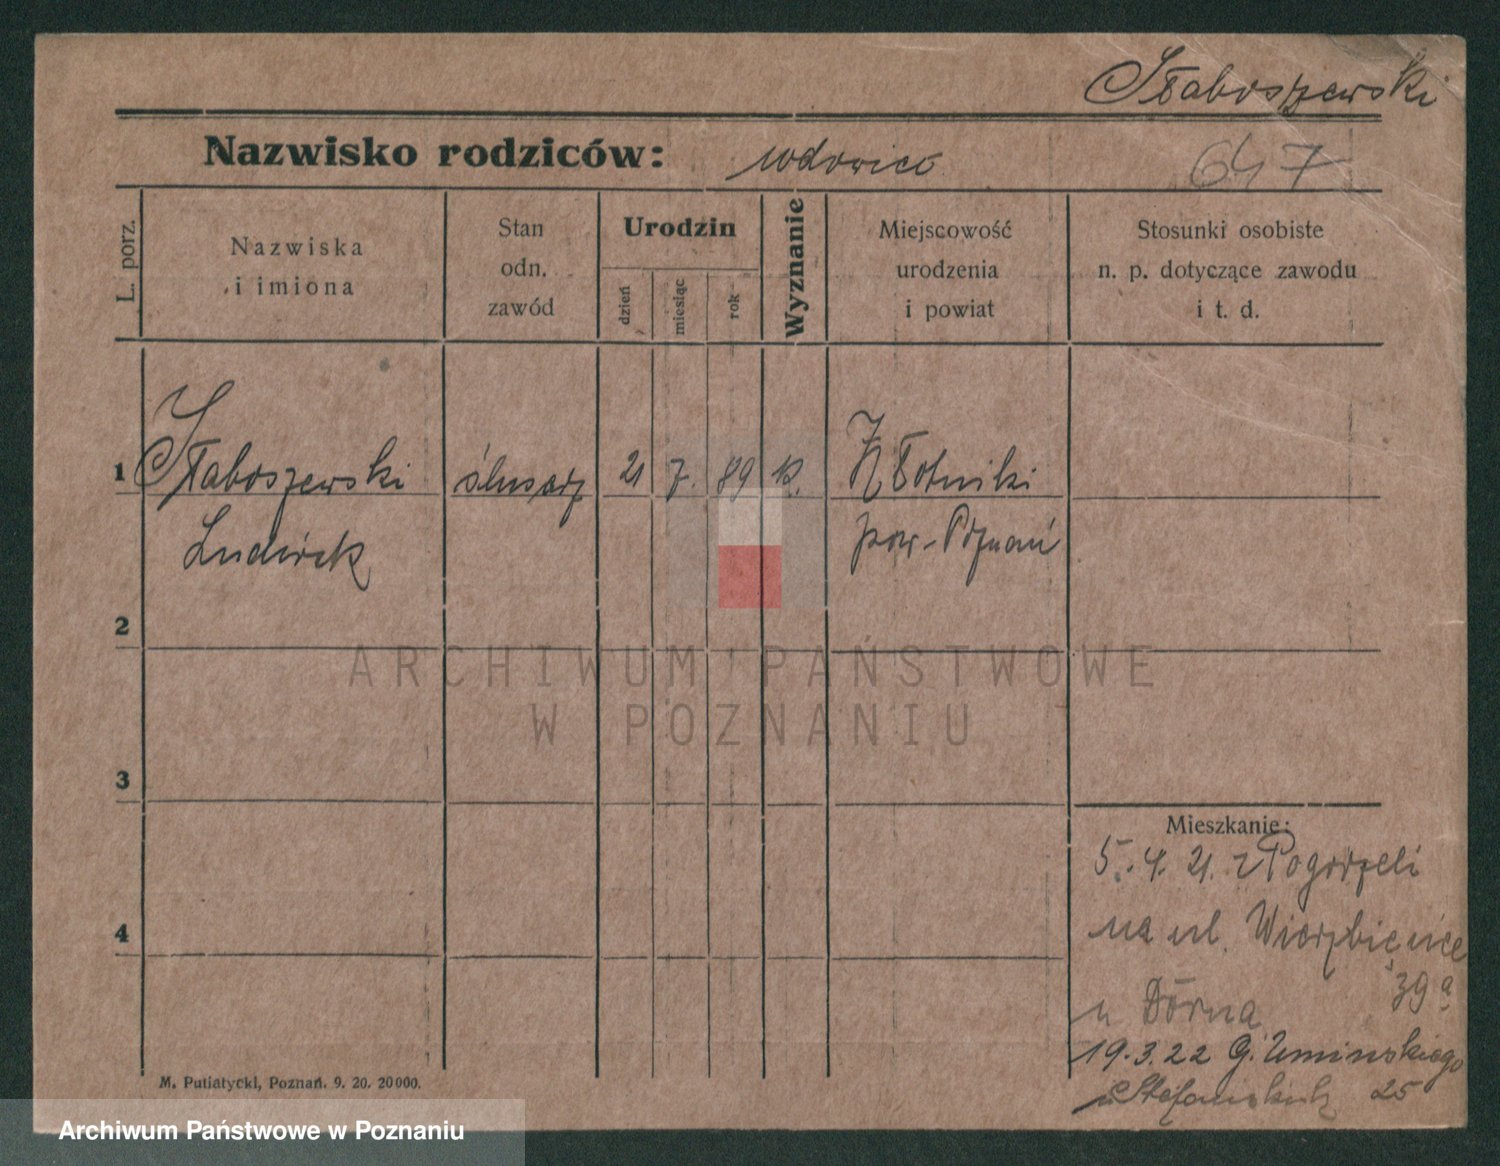 Słaboszewski
Nazwisko rodziców: wdowiec
647
L. porz.
Nazwiska
i imiona
Stan
odn.
zawód
Urodzin
dzień
miesiąc
rok
Wyznanie
Miejscowość
urodzenia
i powiat
Stosunki osobiste
n. p. dotyczące zawodu
i t. d.
1 Słaboszewski ślusarz 21 7. 89 k. Złotniki
Ludwik pow. Poznań
2
3
4
Mieszkanie:
5. 4. 21. z Pogorzeli
na ul. Wierzbięcice
39a
u Dörna
19.3.22 G. Umińskiego
u 25
M. Putiatycki, Poznań. 9. 20. 20000.
ARCHIWUM PAŃSTWOWE
W POZNANIU
Archiwum Państwowe w Poznaniu